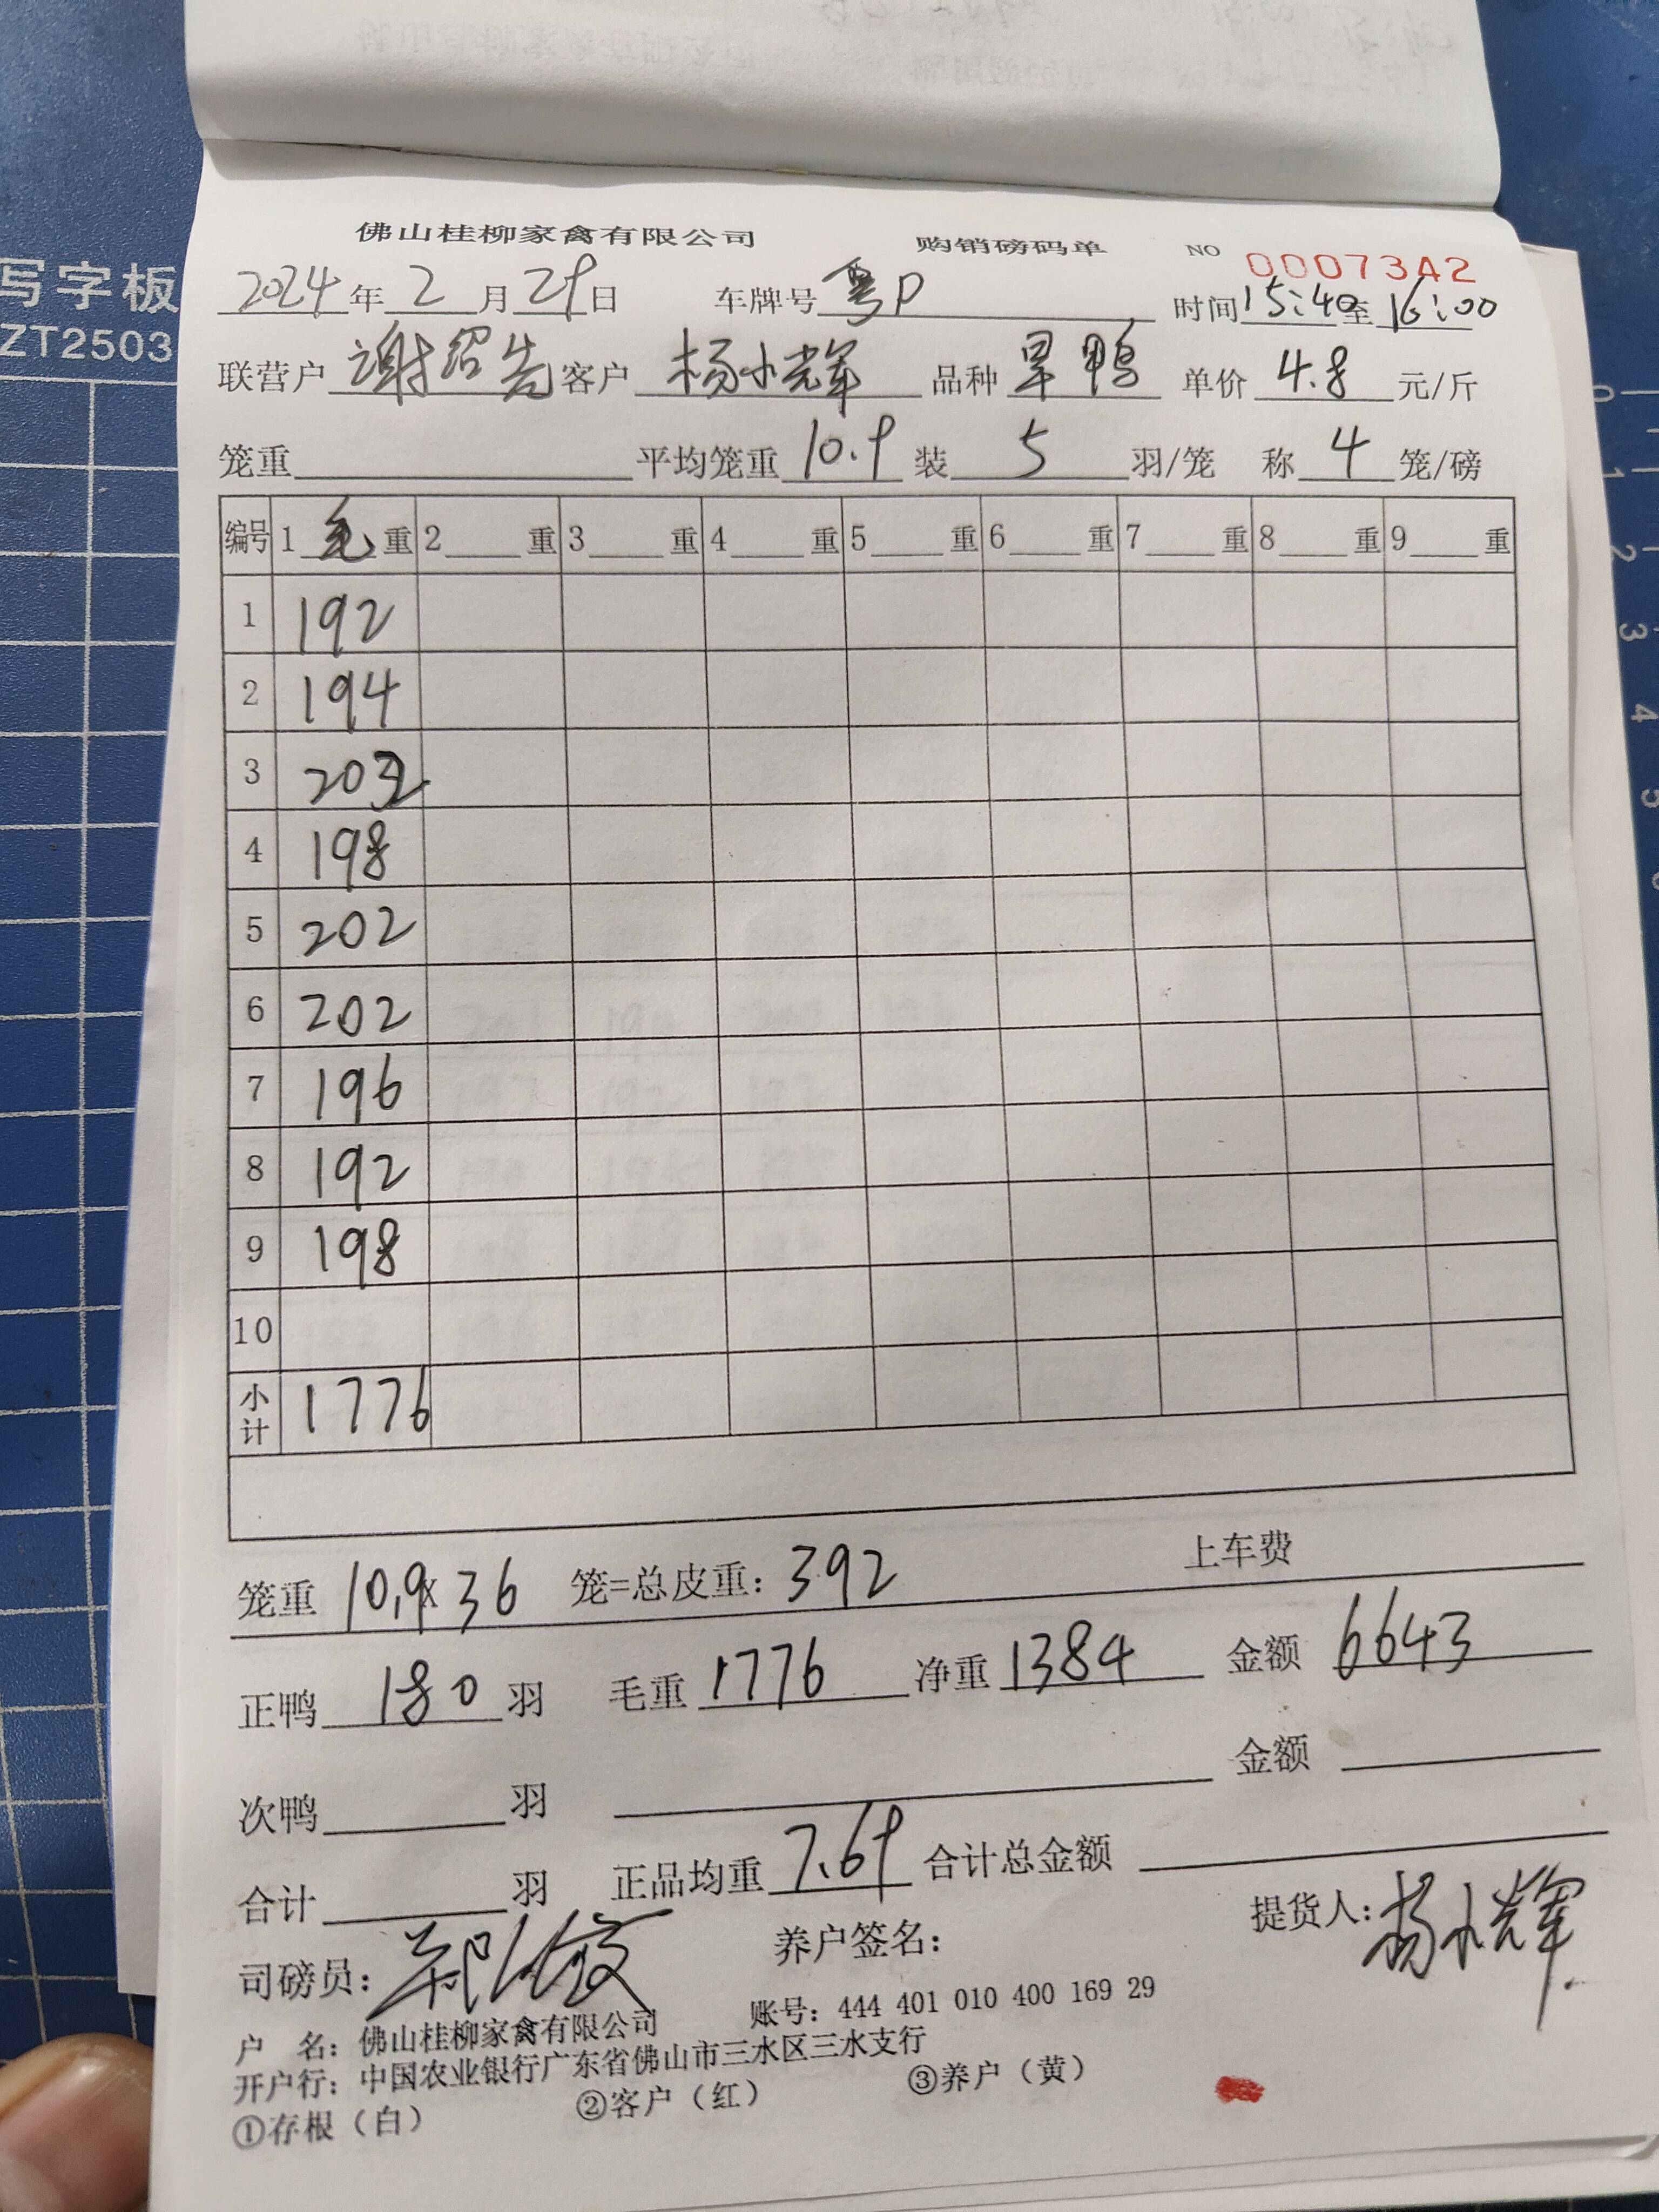 写字板
ZT2503
佛山桂柳家禽有限公司 购销磅码单 NO 00073A2
2024年2月29日 车牌号粤P 时间15:40至16:00
联营户谢绍先客户杨水辉 品种旱鸭 单价4.8元/斤
笼重 平均笼重10.9装5羽/笼 称4笼/磅
编号 1毛重 2重 3重 4重 5重 6重 7重 8重 9重
1 192
2 194
3 202
4 198
5 202
6 202
7 196
8 192
9 198
10
小计 1776
笼重10.9x36笼=总皮重:392 上车费
正鸭180羽 毛重1776净重1384 金额6643
次鸭 羽 金额
合计 羽 正品均重7.69合计总金额
司磅员: 养户签名: 提货人:杨水辉
户 名:佛山桂柳家禽有限公司 账号:444 401 010 400 169 29
开户行:中国农业银行广东省佛山市三水区三水支行
①存根(白) ②客户(红) ③养户(黄)
0
1
2
3
4
5